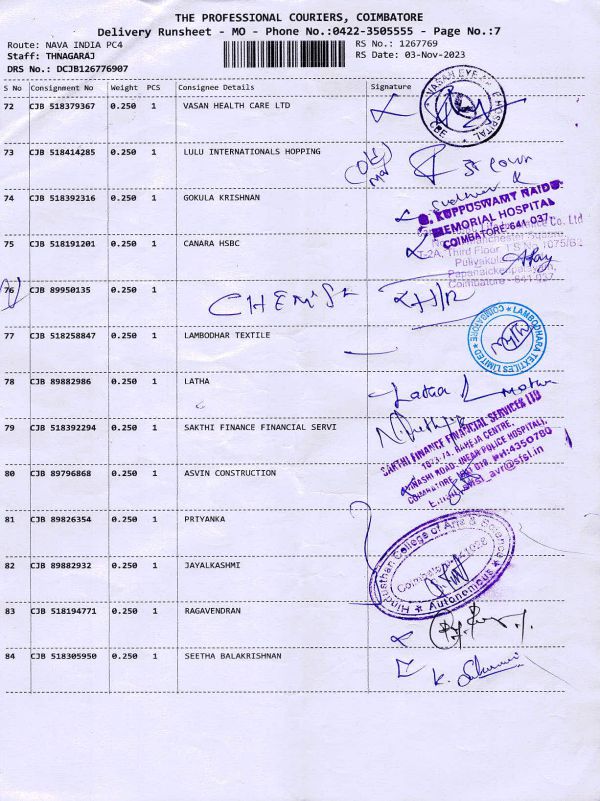 THE PROFESSIONAL COURIERS, COIMBATORE
Delivery Runsheet - MO - Phone No.:0422-3505555 - Page No.:7
Route: NAVA INDIA PC4 RS No.: 1267769
Staff: THNAGARAJ RS Date: 03-Nov-2023
DRS No.: DCJB126776907
S No Consignment No Weight PCS Consignee Details Signature
72 CJB 518379367 0.250 1 VASAN HEALTH CARE LTD
VASAN EYE HOSPITAL CBE
73 CJB 518414285 0.250 1 LULU INTERNATIONALS HOPPING
74 CJB 518392316 0.250 1 GOKULA KRISHNAN
G. KUPPUSWAMY NAIDU
MEMORIAL HOSPITAL
COIMBATORE-641 037
75 CJB 518191201 0.250 1 CANARA HSBC
Co. Ltd
T-2A, Third Floor, T.S No 1075/62
Puliyakulam
Papanaickenpalayam,
Coimbatore - 641 037
76 CJB 89950135 0.250 1
77 CJB 518258847 0.250 1 LAMBODHAR TEXTILE
LAMBODHARA TEXTILES LIMITED COIMBATORE
78 CJB 89882986 0.250 1 LATHA
Latha
79 CJB 518392294 0.250 1 SAKTHI FINANCE FINANCIAL SERVI
SAKTHI FINANCE FINANCIAL SERVICES LTD
RAHEJA CENTRE,
AVINASHI ROAD, (NEAR POLICE HOSPITAL),
COIMBATORE 4350780
80 CJB 89796868 0.250 1 ASVIN CONSTRUCTION
81 CJB 89826354 0.250 1 PRIYANKA
Hindusthan College of Arts & Science
Coimbatore-641028
Autonomous
82 CJB 89882932 0.250 1 JAYALKASHMI
83 CJB 518194771 0.250 1 RAGAVENDRAN
84 CJB 518305950 0.250 1 SEETHA BALAKRISHNAN